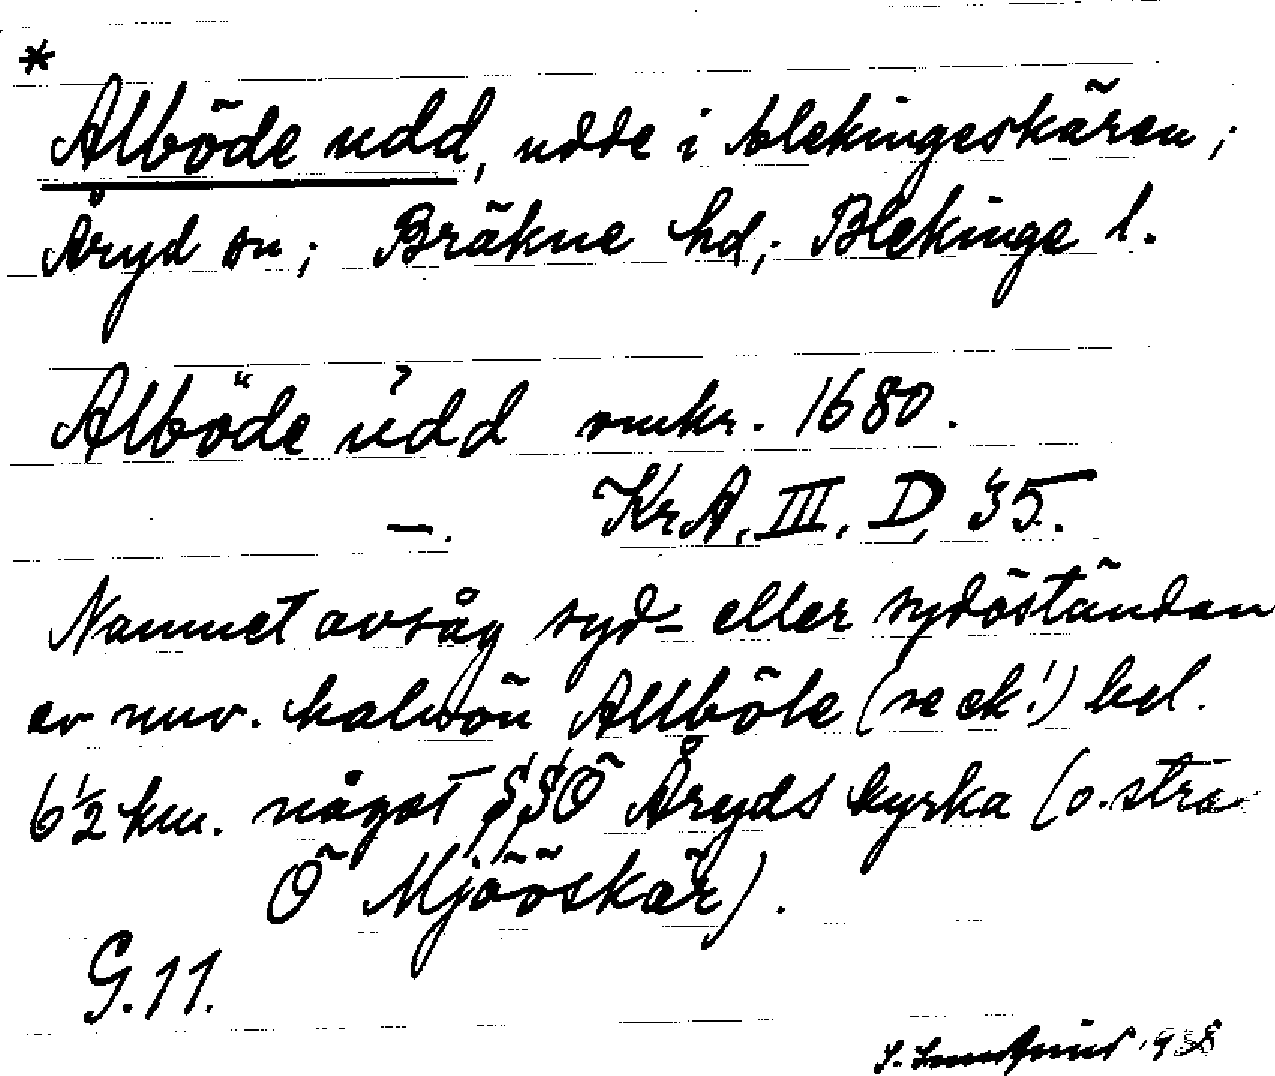 *
Alböde udd, udde i blekingeskären;
Åryd sn; Bräkne hd; Blekinge l.
Alböde údd omkr. 1680.
—. KrA, III, D, 35.
Namnet avsåg syd- eller sydöständan
av nuv. halvön Allböle (se ek!) bel.
6 1/2 km. något SSÖ Åryds kyrka (o. strax
Ö Mjööskär).
G.11.
1938